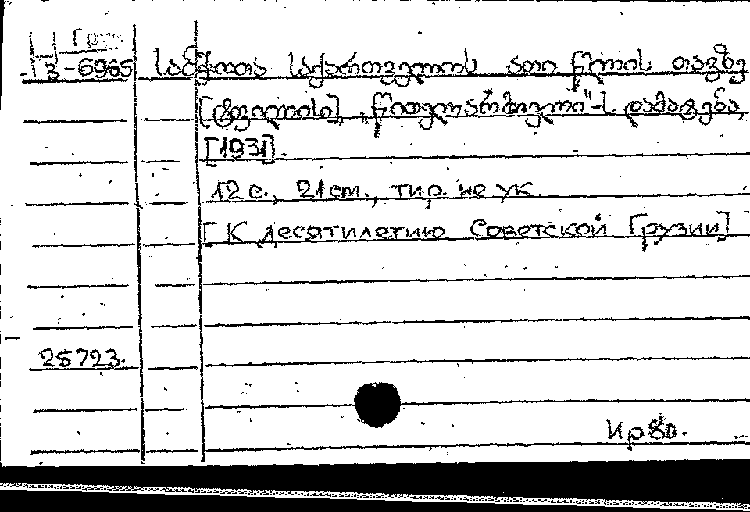 Груз
3-6985 საბჭოთა საქართველოს ათი წლის თავზე
[ტფილისი], „წითელარმიელი"-ს დამატება,
[1931].
12 с., 21 cm., тир. не ук.
[К десятилетию Советской Грузии]
25723.
Ир80.